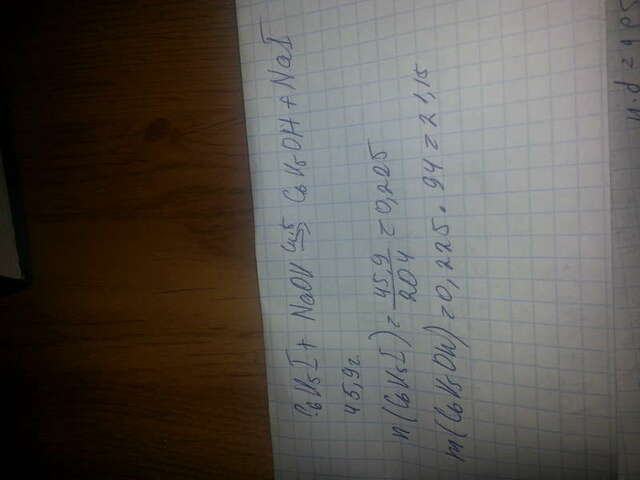 C6H5I + NaOH →(Cu, t) C6H5OH + NaI
45,9 г
n(C6H5I) = 45,9/204 = 0,225
m(C6H5OH) = 0,225 · 94 = 21,15